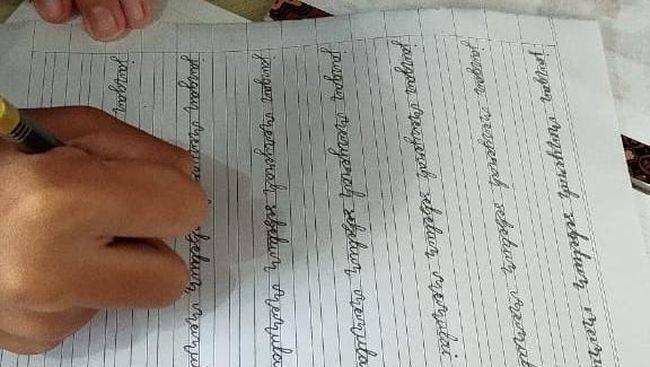 jangan menyerah sebelum mem
jangan menyerah sebelum memula
jangan menyerah sebelum memulai
jangan menyerah sebelum memula
jangan menyerah sebelum memulai
jangan sebelum memu
jangan